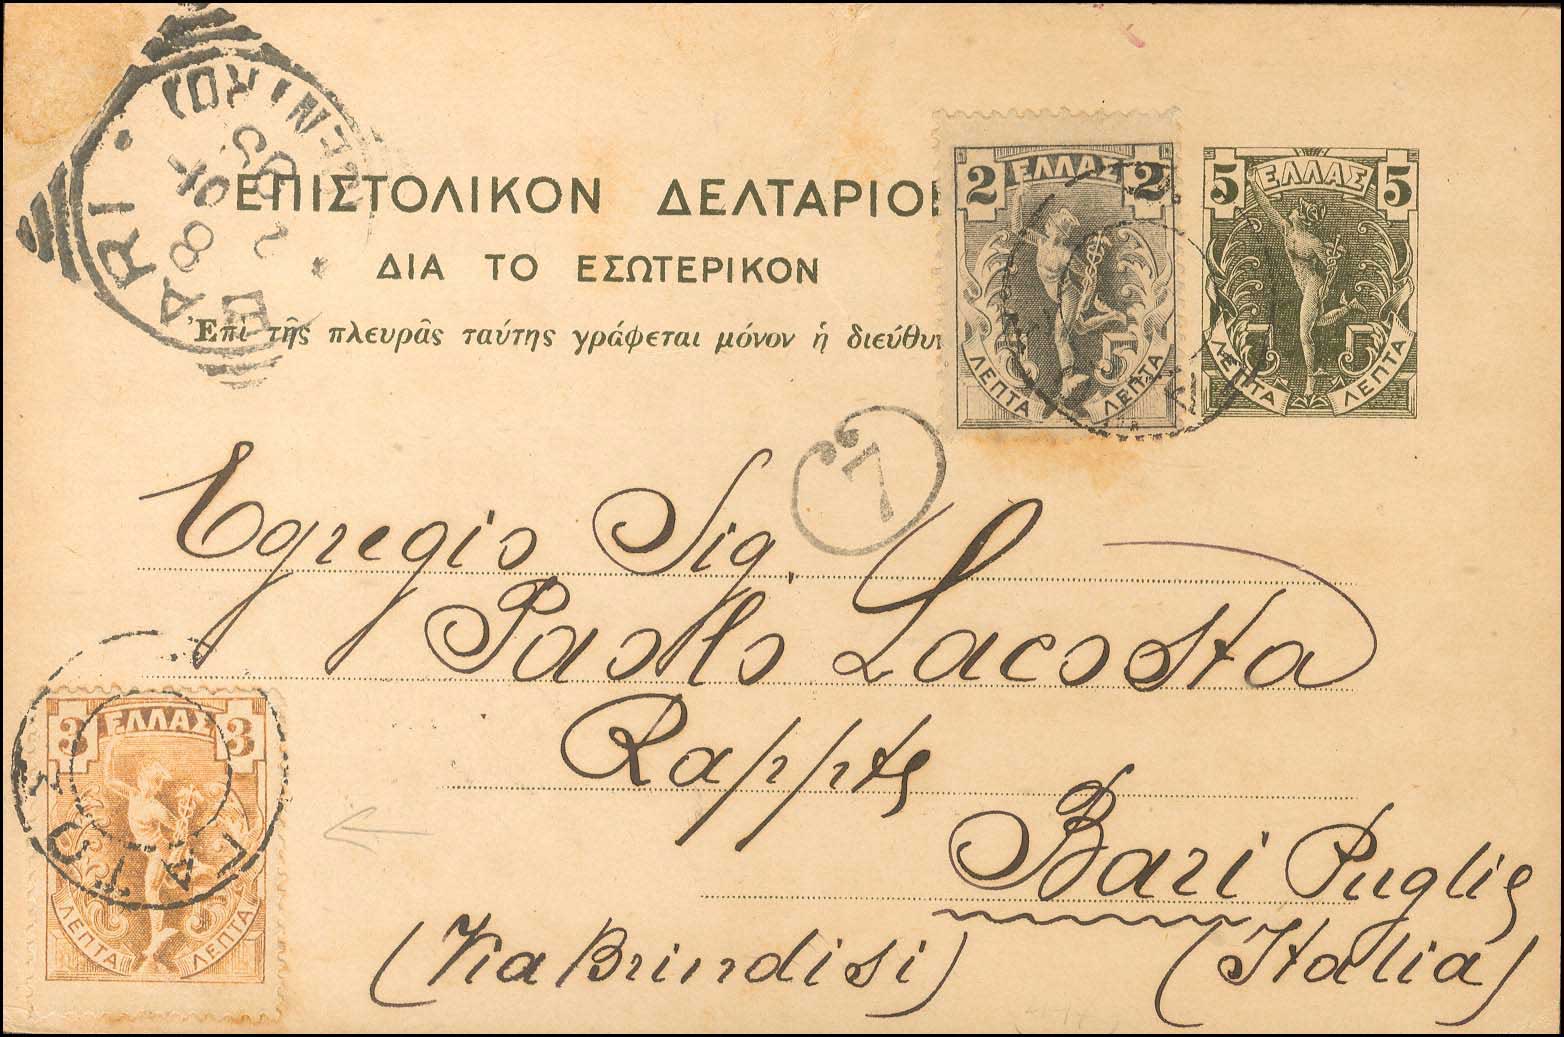 ΕΠΙΣΤΟΛΙΚΟΝ ΔΕΛΤΑΡΙΟΝ
ΔΙΑ ΤΟ ΕΣΩΤΕΡΙΚΟΝ
Ἐπὶ τῆς πλευρᾶς ταύτης γράφεται μόνον ἡ διεύθυν
2 ΕΛΛΑΣ 2
ΛΕΠΤΑ ΛΕΠΤΑ
5 ΕΛΛΑΣ 5
ΛΕΠΤΑ ΛΕΠΤΑ
BARI
8
7
Egregio Sig.
Paolo Lacosta
Bari Puglie
(Via Brindisi) (Italia)
3 ΕΛΛΑΣ 3
ΛΕΠΤΑ ΛΕΠΤΑ